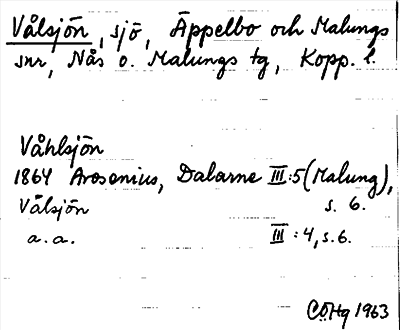 Vålsjön, sjö, Äppelbo och Malungs
snr, Nås o. Malungs tg, Kopp. l.
Våhlsjön
1864 Arosenius, Dalarne III:5 (Malung),
s. 6.
Vålsjön
a.a. III:4, s.6.
CÖHg 1963